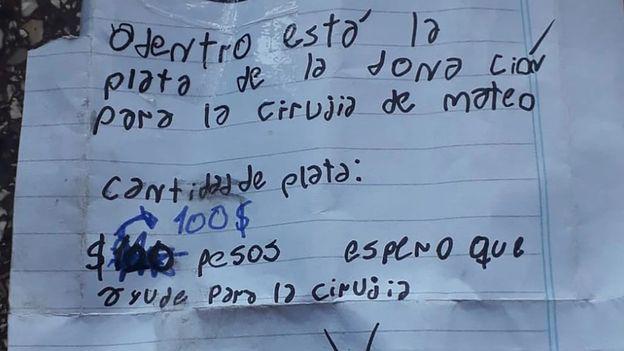 Odentro está la
plata de la dona ción
para la cirujia de mateo
cantidad de plata:
100$
$100 pesos espero que
ayude para la cirujia